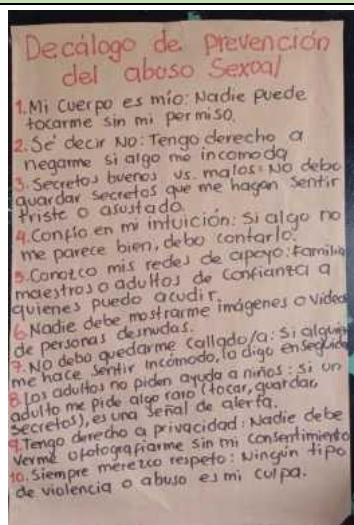 Decálogo de prevención
del abuso Sexual
1. Mi cuerpo es mío: Nadie puede
tocarme sin mi permiso.
2. Sé decir No: Tengo derecho a
negarme si algo me incomoda
3. Secretos buenos vs. malos: No debo
guardar secretos que me hagan sentir
triste o asustado.
4. Confío en mi intuición: Si algo no
me parece bien, debo contarlo.
5. Conozco mis redes de apoyo: Familia
maestros o adultos de confianza a
quienes puedo acudir.
6. Nadie debe mostrarme imágenes o videos
de personas desnudas.
7. No debo quedarme callado/a: Si alguien
me hace sentir incómodo, lo digo enseguida
8. Los adultos no piden ayuda a niños: si un
adulto me pide algo raro (tocar, guardar
secretos), es una señal de alerta.
9. Tengo derecho a privacidad: Nadie debe
verme o fotografiarme sin mi consentimiento
10. Siempre merezco respeto: Ningún tipo
de violencia o abuso es mi culpa.